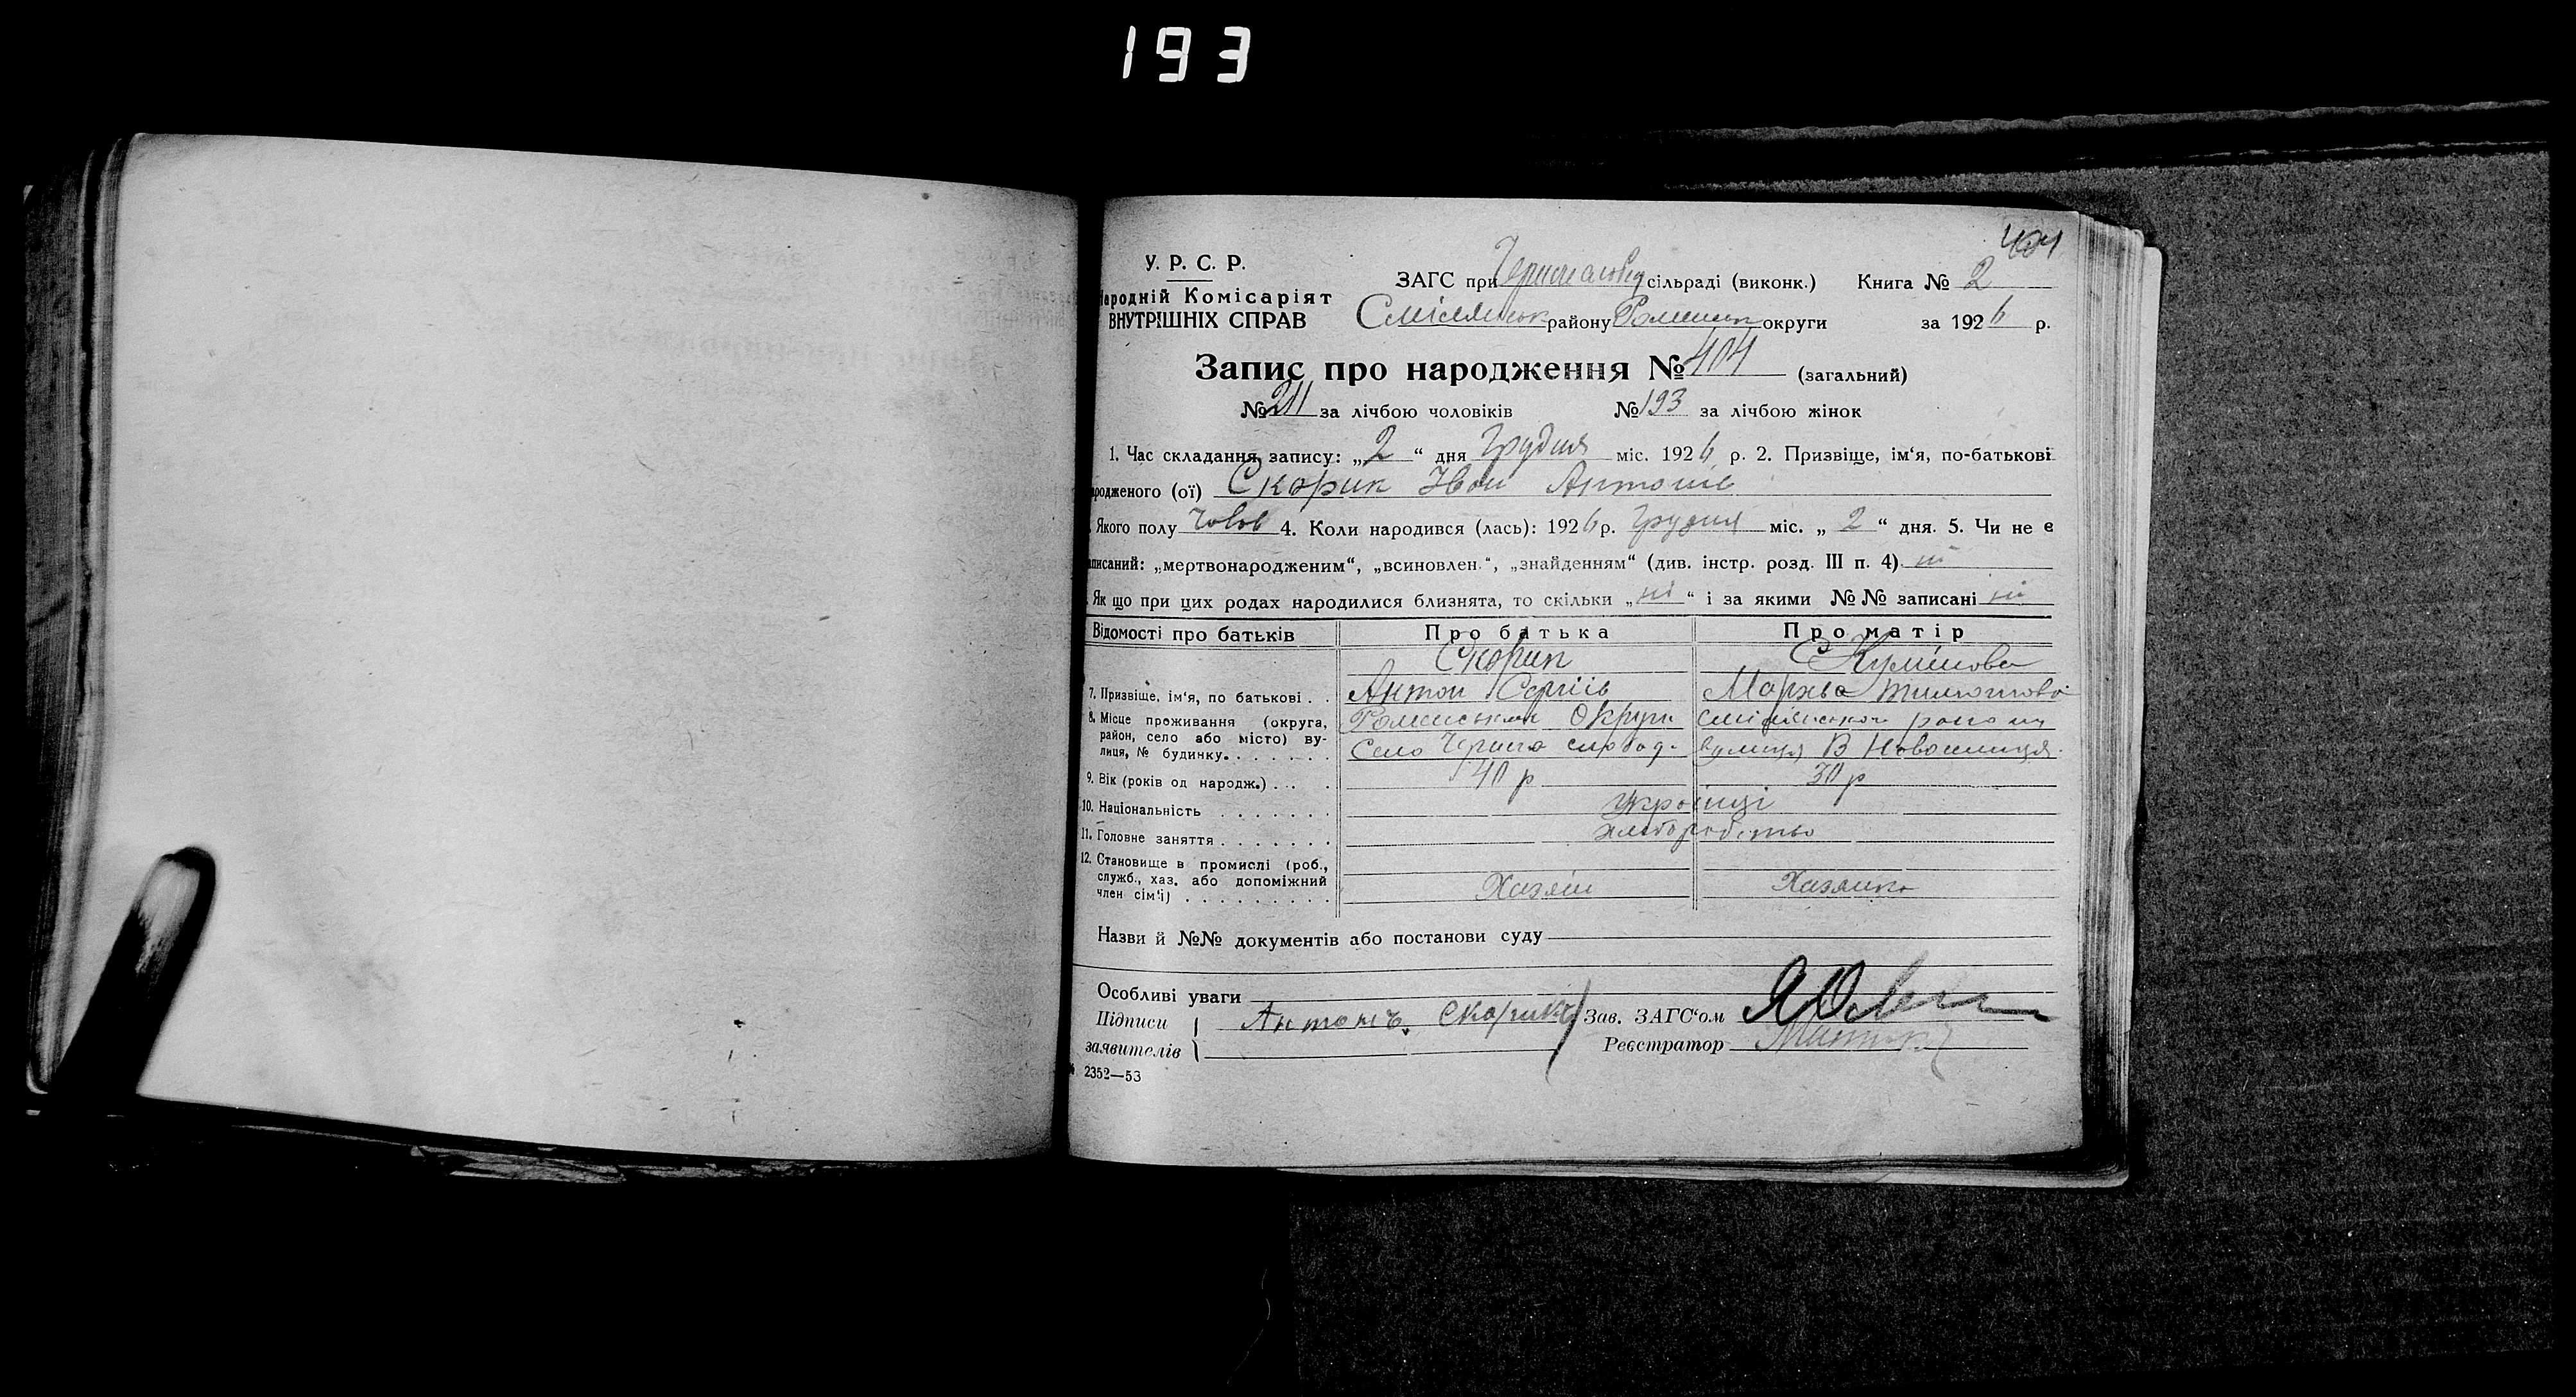 193
404
У. Р. С. Р.
Народній Комісаріят
ВНУТРІШНІХ СПРАВ
ЗАГС при сільраді (виконк.) Книга № 2
Смілянськ району Роменськ округи за 1926 р.
Запис про народження № 404 (загальний)
№ 211 за лічбою чоловіків № 193 за лічбою жінок
1. Час складання запису: „2“ дня Грудня міс. 1926 р. 2. Призвіще, ім‘я, по-батькові
родженого (ої) Скорик Іван Антонів
Якого полу Чолов 4. Коли народився (лась): 1926 р. Грудня міс. „2“ дня. 5. Чи не є
записаний: „мертвонародженим“, „всиновлен.“, „знайденням“ (див. інстр. розд. III п. 4) ні
Як що при цих родах народилися близнята, то скільки „ні“ і за якими №№ записані ні
Відомості про батьків Про батька Про матір
Скорик
7. Призвіще, ім‘я, по батькові . . Антон Сергіїв
8. Місце проживання (округа, район, село або місто) вулиця, № будинку. Роменськ Округи Смілянського району
Село Чернеча слобод. вулиця В Новоселиця.
9. Вік (років од народж.) . . . 40 р 30 р
10. Національність . . . . . . . Українці
11. Головне заняття . . . . . . . хліборобство
12. Становище в промислі (роб.,
служб., хаз. або допоміжний
член сім‘ї) . . . . . . . . . Хазяін Хазяйка
Назви й №№ документів або постанови суду
Особливі уваги
Підписи Антонъ Скорикъ Зав. ЗАГС‘ом
заявителів Реєстратор
2352—53